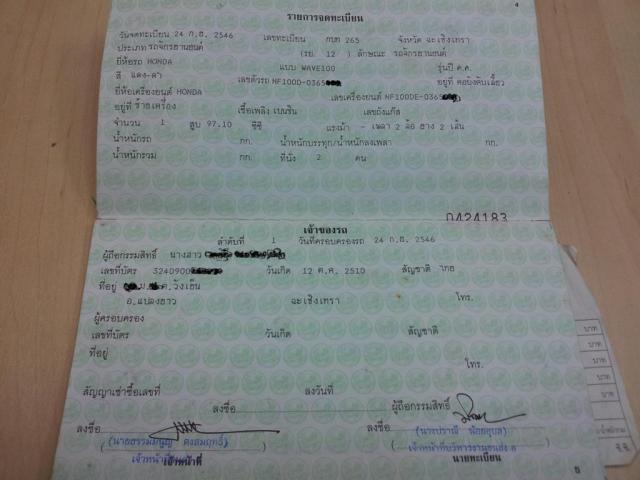 4
รายการจดทะเบียน
วันจดทะเบียน 24 ก.ย. 2546 เลขทะเบียน กบท 265 จังหวัด ฉะเชิงเทรา
ประเภท รถจักรยานยนต์ (รย. 12 ) ลักษณะ รถจักรยานยนต์
ยี่ห้อรถ HONDA แบบ WAVE100 รุ่นปี ค.ศ.
สี แดง-ดำ เลขตัวรถ NF100D-0365 อยู่ที่ คอบังคับเลี้ยว
ยี่ห้อเครื่องยนต์ HONDA เลขเครื่องยนต์ NF100DE-0365
อยู่ที่ ข้างเครื่อง เชื้อเพลิง เบนซิน เลขถังแก๊ส
จำนวน 1 สูบ 97.10 ซีซี แรงม้า - เพลา 2 ล้อ ยาง 2 เส้น
น้ำหนักรถ กก. น้ำหนักบรรทุก/น้ำหนักลงเพลา กก.
น้ำหนักรวม กก. ที่นั่ง 2 คน
0424183
เจ้าของรถ
ลำดับที่ 1 วันที่ครอบครองรถ 24 ก.ย. 2546
ผู้ถือกรรมสิทธิ์ นางสาว
เลขที่บัตร 3240900 วันเกิด 12 ต.ค. 2510 สัญชาติ ไทย
ที่อยู่ ต.วังเย็น
อ.แปลงยาว ฉะเชิงเทรา โทร.
ผู้ครอบครอง
เลขที่บัตร วันเกิด สัญชาติ
ที่อยู่
โทร.
สัญญาเช่าซื้อเลขที่ ลงวันที่
ลงชื่อ ผู้ถือกรรมสิทธิ์
ลงชื่อ ลงชื่อ
(นายธรรมมนูญ คงสมฤทธิ์) (นางปราณี น้อยอุบล)
เจ้าหน้าที่ เจ้าหน้าที่บริหารงานขนส่ง
เจ้าหน้าที่ นายทะเบียน
5
บาท
บาท
บาท
บาท
บาท